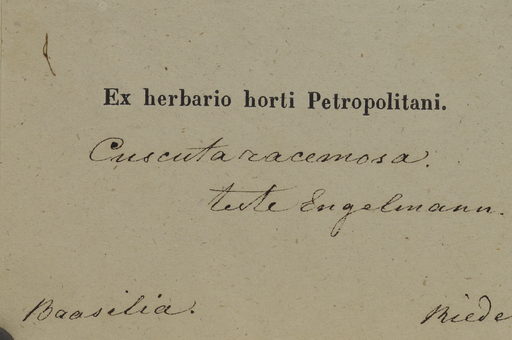 Ex herbario horti Petropolitani.
Cuscuta racemosa.
teste Engelmann.
Brasilia. Riede